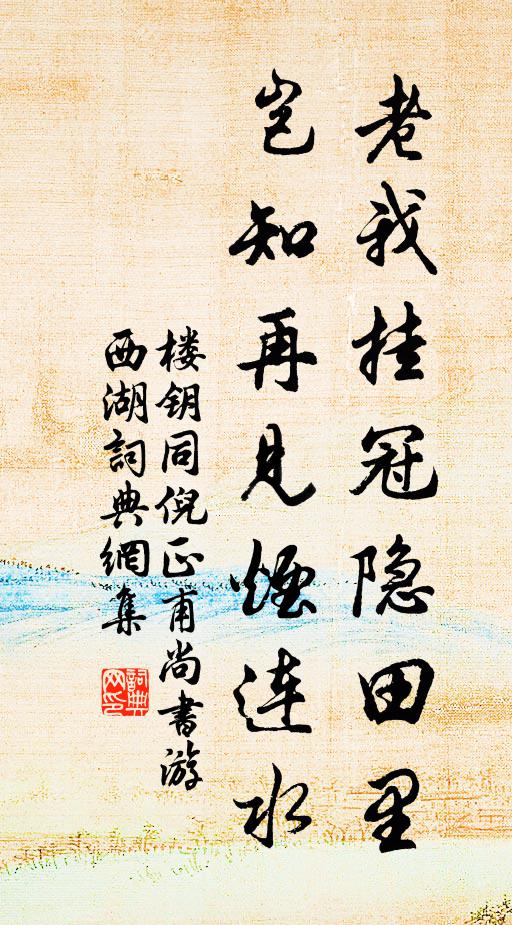 老我挂冠隐田里
岂知再见烟连水
楼钥同倪正甫尚书游
西湖詞典網集
詞典
网印